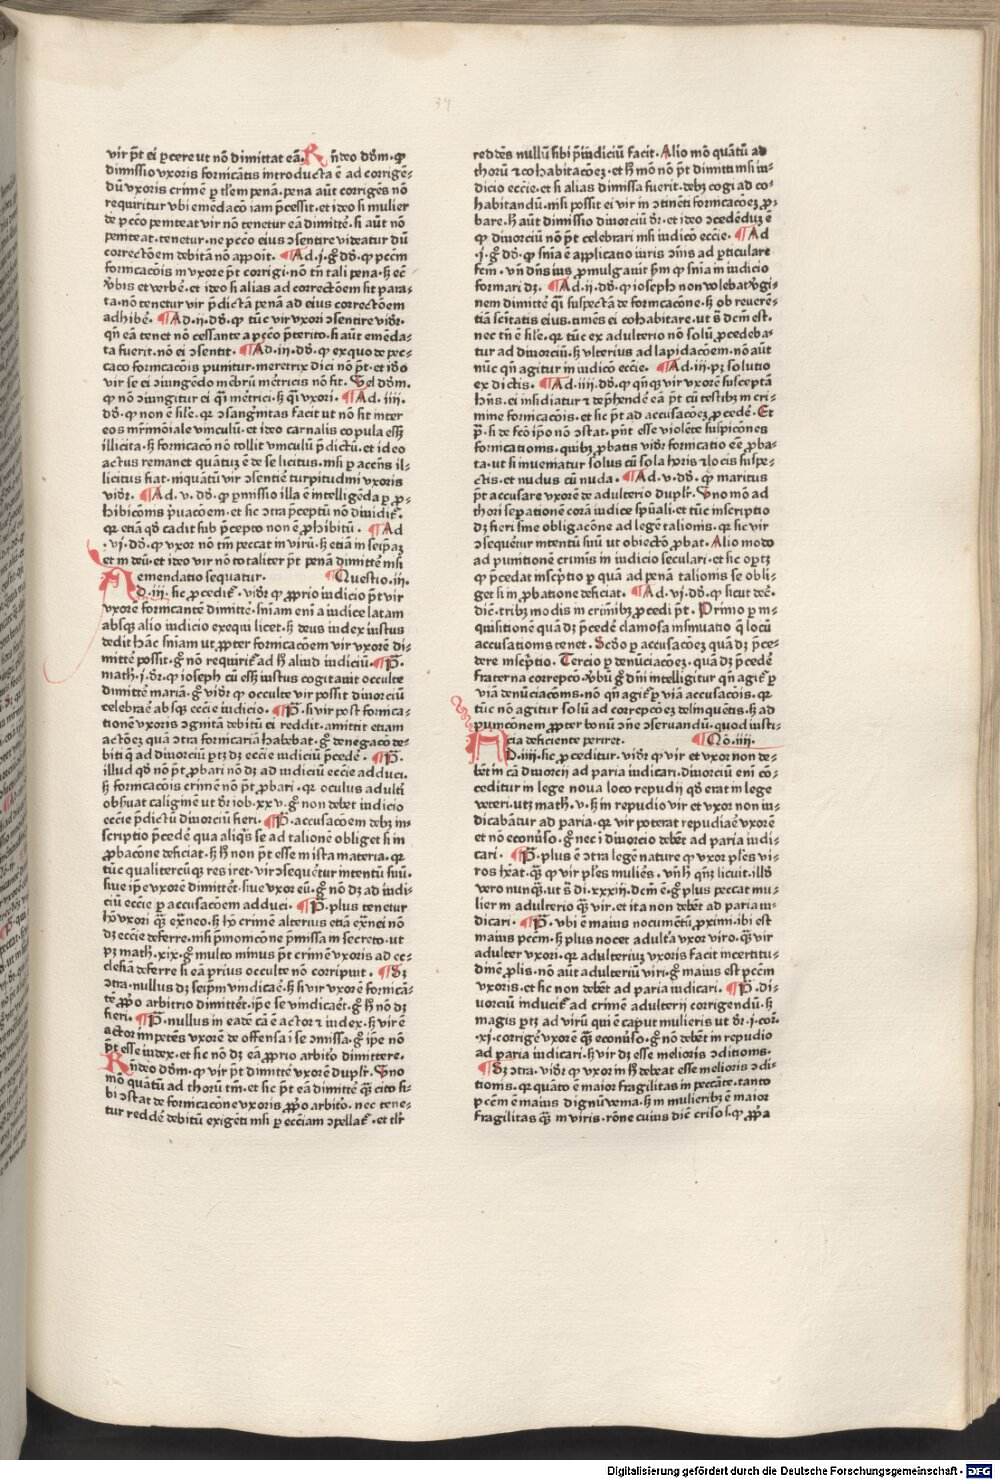 37
vir p̄t ei ꝑcere ut nō dimittat eā. Rn̄deo dō̄m. ꝙ
dimissio vxoris fornicātis introducta ē ad corrigē⸗
dū vxoris crimē ꝑ tl̄em penā. pena aūt corrigēs nō
requiritur vbi emēdac̄o iam p̄cessit. et ideo si mulier
de pcc̄o peniteat vir nō tenetur eā dimittē. si aūt nō
peniteat. tenetur. ne pcc̄o eius ↄsentire videatur dū
correctōem debitā nō appōit. ¶ Ad .j. gͦ dō̄. ꝙ pcc̄m
fornicac̄ōis in vxore p̄t corrigi. nō tn̄ tali pena. sꝫ ec̄
v̓bis et verbē. et ideo si alias ad correctōem sit para⸗
ta. nō tenetur vir p̄dictā penā ad eius correctōem
adhibē. ¶ Ad .ij. dō̄. ꝙ tūc vir vxori ↄsentire vidr̄.
qn̄ eā tenet nō cessante a pcc̄o p̄terito. si aūt emēda⸗
ta fuerit. nō ei ↄsentit. ¶ Ad .iij. dō̄. ꝙ ex quo de pec⸗
cato fornicac̄ōis punitur. meretrix dici nō p̄t. et ideo
vir se ei ↄiungēdo mēbrū me̓tricis nō fit. Vel dō̄m.
ꝙ nō ↄiungitur ei q̄si me̓trici. sꝫ q̄si vxori. ¶ Ad .iiij.
dō̄. ꝙ non ē sil̄e. qꝛ ↄsangͥnitas facit ut nō sit inter
eos mr̄imōiale vinculū. et ideo carnalis copula ess̄ꝫ
illicita. sꝫ fornicac̄o nō tollit vinculū p̄dictū. et ideo
actus remanet quātuꝫ ē de se licitus. nisi ꝑ accn̄s il⸗
licitus fiat. inquātū vir ↄsentiē turpitudini vxoris
vidr̄. ¶ Ad .v. dō̄. ꝙ ꝑmissio illa ē intelligēda ꝑ ꝓ⸗
hibic̄onis p̓uac̄oem. et sic ↄtra p̄ceptū nō diuidiƭ.
qꝛ etiā qd̄ cadit sub p̄cepto non ē ꝓhibitū. ¶ Ad
.vj. dō̄. ꝙ vxor nō tm̄ peccat in virū. sꝫ etiā in seip̄aꝫ
et in deū. et ideo vir nō totaliter p̄t penā dimittē nisi
emendatio sequatur. ¶ Questio .iij.
Ad .iij. sic ꝓcediƭ. vidr̄ ꝙ ꝓprio iudicio p̄t vir
vxorē fornicantē dimittē. sn̄iam eni̅ a iudice latam
absqꝫ alio iudicio exequi licet. sꝫ deus iudex iustus
dedit hāc sn̄iam ut ꝓpter fornicac̄oem vir vxorē di⸗
mittē possit. gͦ nō requiriƭ ad hͦ aliud iudiciū. ¶ P̄.
math. j. dr̄. ꝙ ioseph cū ess̄ꝫ iustus cogitauit occulte
dimittē mariā. gͦ vidr̄ ꝙ occulte vir possit diuorciū
celebraē absqꝫ eccl̄ie iudicio. ¶ P̄. si vir post fornica⸗
tionē vxoris ↄgnitā debitū ei reddit. amittit etiam
actōeꝫ quā ↄtra fornicariā habebat. gͦ denegac̄o de⸗
biti q̄ ad diuorciū ptꝫ dꝫ eccl̄ie iudiciū p̄cedē. ¶ P̄.
illud qd̄ nō p̄t ꝓbari nō dꝫ ad iudiciū eccl̄ie adduci.
sꝫ fornicac̄ōis crimē nō p̄t ꝓbari. qꝛ oculus adult̓i
obs̓uat caliginē ut dr̄ iob .xxv. gͦ non debet iudicio
eccl̄ie p̄dictū diuorciū fieri. ¶ P̄. accusac̄oem debꝫ in⸗
scriptio p̄cedē qua aliqͥs se ad talionē obliget si in
ꝓbac̄one deficiat. sꝫ hͦ non p̄t esse in ista materia. qꝛ
tūc qualitercūqꝫ res iret. vir ↄsequētur intentū suū.
siue ip̄e vxorē dimittēt. siue vxor eū. gͦ nō dꝫ ad iudi⸗
ciū eccl̄ie ꝑ accusac̄oem adduci. ¶ P̄. plus tenetur
hō vxori qͣꝫ exn̄eo. sꝫ hō crimē alterius etiā exn̄ei nō
dꝫ eccl̄ie deferre. nisi p̄monic̄one p̄missa in secreto. ut
pꝫ math. xix. gͦ multo minus p̄t crimē vxoris ad ec⸗
clesiā deferre si eā prius occulte nō corripuit. ¶ Sꝫ
ↄtra. nullus dꝫ seip̄m vindicaē. sꝫ si vir vxorē fornicā⸗
tē ꝓpͥo arbitrio dimittēt. ip̄e se vindicaēt. gͦ hͦ nō dꝫ
fieri. ¶ P̄. nullus in eadē cā ē actor ⁊ iudex. sꝫ vir ē
actor impetēs vxorē de offensa ī se ↄmissa. gͦ ip̄e nō
p̄t esse iudex. et sic nō dꝫ eā ꝓprio arbitͦ dimittere.
Rn̄deo dō̄m. ꝙ vir p̄t dimittē vxorē duplr̄. Vno
mō quātū ad thorū tm̄. et sic p̄t eā dimittē qͣꝫ cito si⸗
bi ↄstat de fornicac̄one vxoris ꝓpͥo arbitͦ. nec tene⸗
tur reddē debitū exigēti nisi ꝑ eccl̄iam ↄpellaƭ. et tl̄r
reddēs nullū sibi p̄iudiciū facit. Alio mō quātū ad
thorū ⁊ cohabitac̄oeꝫ. et hͦ mō nō p̄t dimitti nisi iu⸗
dicio eccl̄ie. et si alias dimissa fuerit. debꝫ cogi ad co⸗
habitandū. nisi possit ei vir in ↄtinēti fornicac̄oeꝫ ꝓ⸗
bare. hͦ aūt dimissio diuorciū dr̄. et ideo ↄcedēduꝫ ē
ꝙ diuorciū nō p̄t celebrari nisi iudicio eccl̄ie. ¶ Ad
.j. gͦ dō̄. ꝙ sn̄ia ē applicatio iuris ↄmīs ad ꝑticulare
fcm̄. vn̄ dn̄s ius ꝓmulgauit ẜm ꝙ sn̄ia in iudicio
formari dꝫ. ¶ Ad .ij. dō̄. ꝙ ioseph non volebat v̓gi⸗
nem dimittē q̄si suspectā de fornicac̄one. sꝫ ob reuerē⸗
tiā sc̄itatis eius. timēs ei cohabitare. ut s̄ dcm̄ est.
nec tn̄ ē sil̄e. qꝛ tūc ex adulterio nō solū ꝓcedeba⸗
tur ad diuorciū. sꝫ vlterius ad lapidac̄oem. nō aūt
nūc qn̄ agitur in iudicio eccl̄ie. ¶ Ad .iij. pꝫ solutio
ex dictis. ¶ Ad .iiij. dō̄. ꝙ qn̄qꝫ vir vxorē suspectā
hn̄s. ei insidiatur ⁊ dep̄hendē eā p̄t cū testibꝫ in cri⸗
mine fornicac̄ōis. et sic p̄t ad accusac̄oeꝫ ꝓcedē. Et
p̄. si de fcō ip̄o nō ↄstat. pn̄t esse violēte suspic̄ones
fornicationis. quibꝫ ꝓbatis vidr̄ fornicatio eē ꝓba⸗
ta. ut si inueniatur solus cū sola horis ⁊ locis suspe⸗
ctis. et nudus cū nuda. ¶ Ad .v. dō̄. ꝙ maritus
p̄t accusare vxorē de adulterio duplr̄. Vno mō ad
thori sepationē corā iudice spūali. et tūc inscriptio
dꝫ fieri sine obligac̄one ad legē talionis. qꝛ sic vir
ↄsequētur intentū suū ut obiectō ꝓbat. Alio modo
ad punitionē criminis in iudicio seculari. et sic oꝑtꝫ
ꝙ p̄cedat inscp̄tio ꝑ quā ad penā talionis se obli⸗
get si in ꝓbatione deficiat. ¶ Ad .vj. dō̄. ꝙ sicut dec̄.
dic̄. tribꝫ modis in crim̄ibꝫ ꝓcedi p̄t. Primo ꝑ in⸗
quisitionē quā dꝫ p̄cedē clamosa insinuatio q̄ locū
accusationis tenet. Scd̄o ꝑ accusac̄oeꝫ quā dꝫ p̄ce⸗
dere inscp̄tio. Tercio ꝑ denūciac̄oeꝫ. quā dꝫ p̄cedē
fraterna correpc̄o. v̓bū gͦ dn̄i intelligitur qn̄ agiƭ ꝑ
viā denūciac̄onis. nō qn̄ agiƭ ꝑ viā accusac̄ōis. qꝛ
tūc nō agitur solū ad correpc̄oeꝫ delinquētis. sꝫ ad
punic̄onem ꝓpter bonū ↄn̄e ↄseruandū. quod iusti⸗
cia deficiente periret. ¶ Qō .iiij.
AD .iiij. sic ꝓceditur. vidr̄ ꝙ vir et vxor non de⸗
bēt in cā diuorcii ad paria iudicari. diuorciū eni̅ cō⸗
ceditur in lege noua loco repudij qd̄ erat in lege
veteri. utꝫ math. v. sꝫ in repudio vir et vxor non iu⸗
dicabātur ad paria. qꝛ vir poterat repudiaē vxorē
et nō econūso. gͦ nec ī diuorcio debēt ad paria iudi⸗
cari. ¶ P̄. plus ē ↄtra legē nature ꝙ vxor pl̄es vi⸗
ros hēat. qͣꝫ ꝙ vir pl̄es mulie̓s. vn̄ hͦ qn̄ꝫ licuit. illd̄
vero nunqͣꝫ. ut s̄ di. xxxiij. dcm̄ ē. gͦ plus peccat mu⸗
lier in adulterio qͣꝫ vir. et ita non debēt ad paria iu⸗
dicari. ¶ P̄. vbi ē maius nocumētū ꝓximi. ibi est
maius pcc̄m. sꝫ plus nocet adult̓a vxor viro. qͣꝫ vir
adulter vxori. qꝛ adulteriuꝫ vxoris facit incertitu⸗
dinē ꝓlis. nō aūt adulteriū viri. gͦ maius est pcc̄m
vxoris. et sic non debēt ad paria iudicari. ¶ P̄. di⸗
uorciū induciƭ ad crimē adulterij corrigendū. sꝫ
magis ptꝫ ad virū qui ē caput mulieris ut dr̄ .j. cor̄.
.xj. corrigē vxorē qͣꝫ econūso. gͦ nō debēt in repudio
ad paria iudicari. sꝫ vir dꝫ esse melioris ↄditionis.
¶ Sꝫ ↄtra. vidr̄ ꝙ vxor in hͦ debeat esse melioris ↄdi⸗
tionis. qꝛ quāto ē maior fragilitas in peccāte. tanto
pcc̄m ē maius dignū venia. sꝫ in mulieribꝫ ē maior
fragilitas qͣꝫ in viris. rōne cuius dic̄ crisos. ꝙ ꝓpͥa
Digitalisierung gefördert durch die Deutsche Forschungsgemeinschaft - DFG